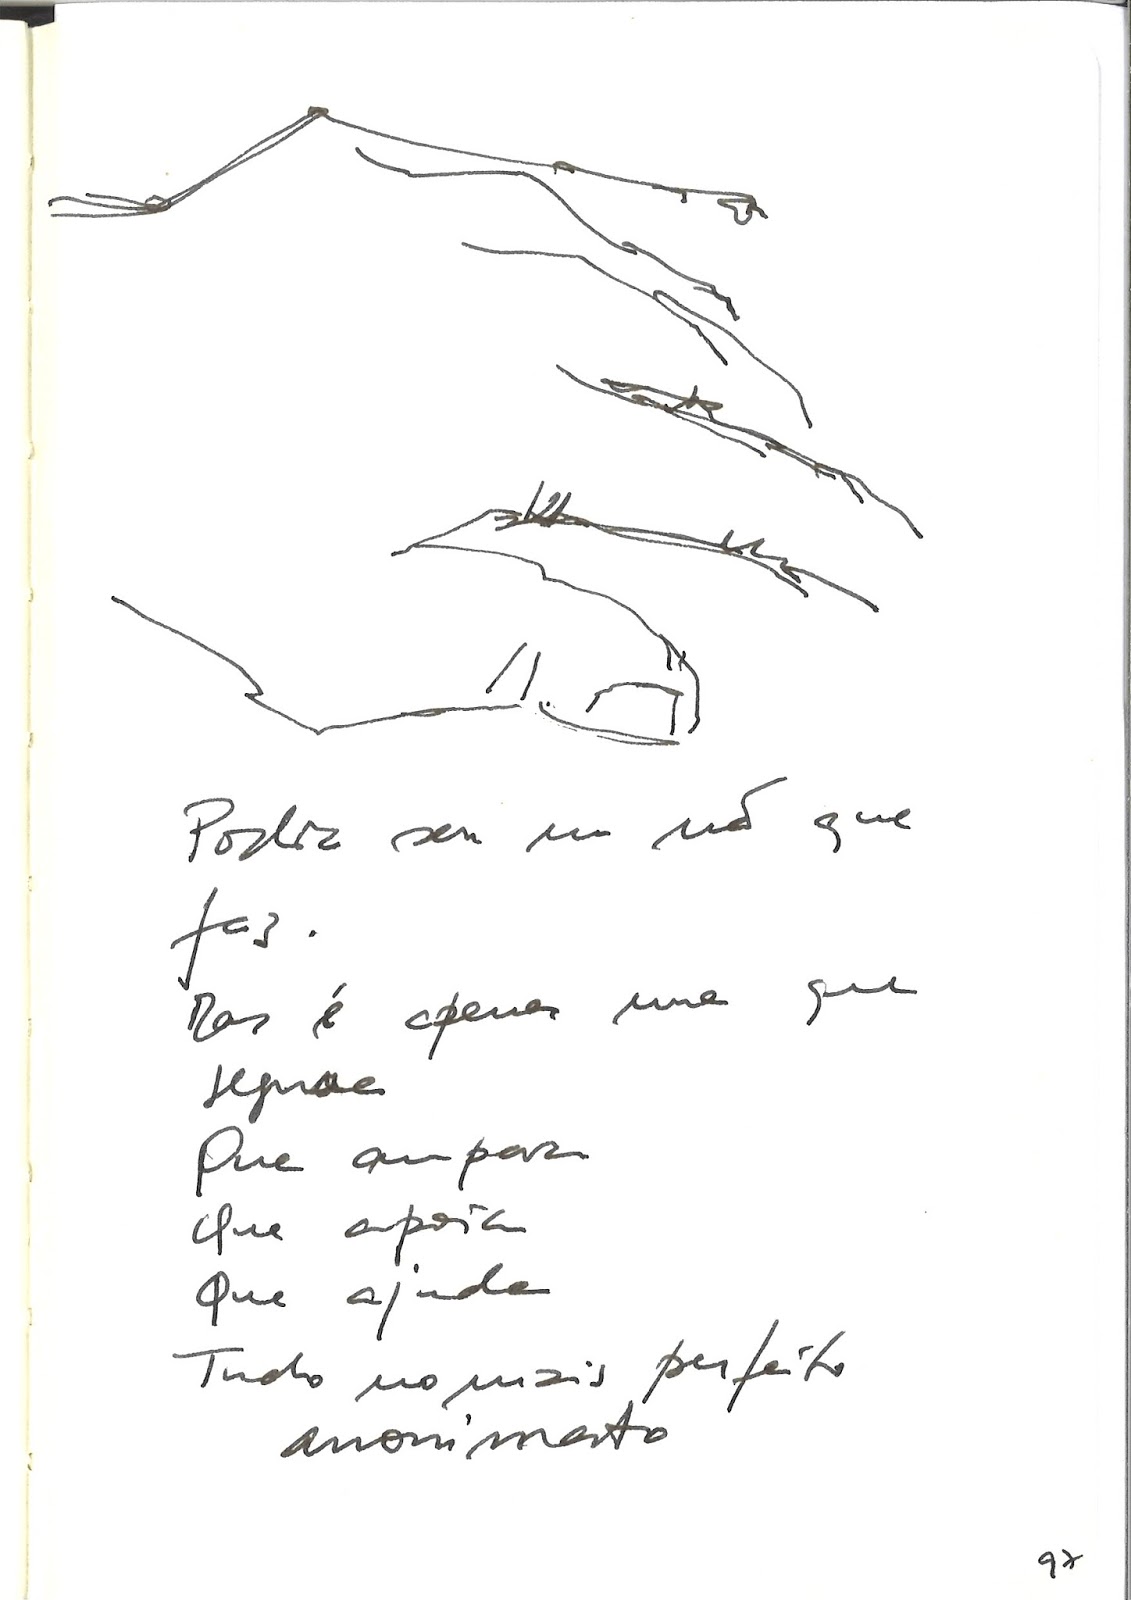 Podia ser um mão que
faz.
Mas é apenas uma que
segura
Que ampara
Que apoia
Que ajuda
Tudo no mais perfeito
anonimato
97